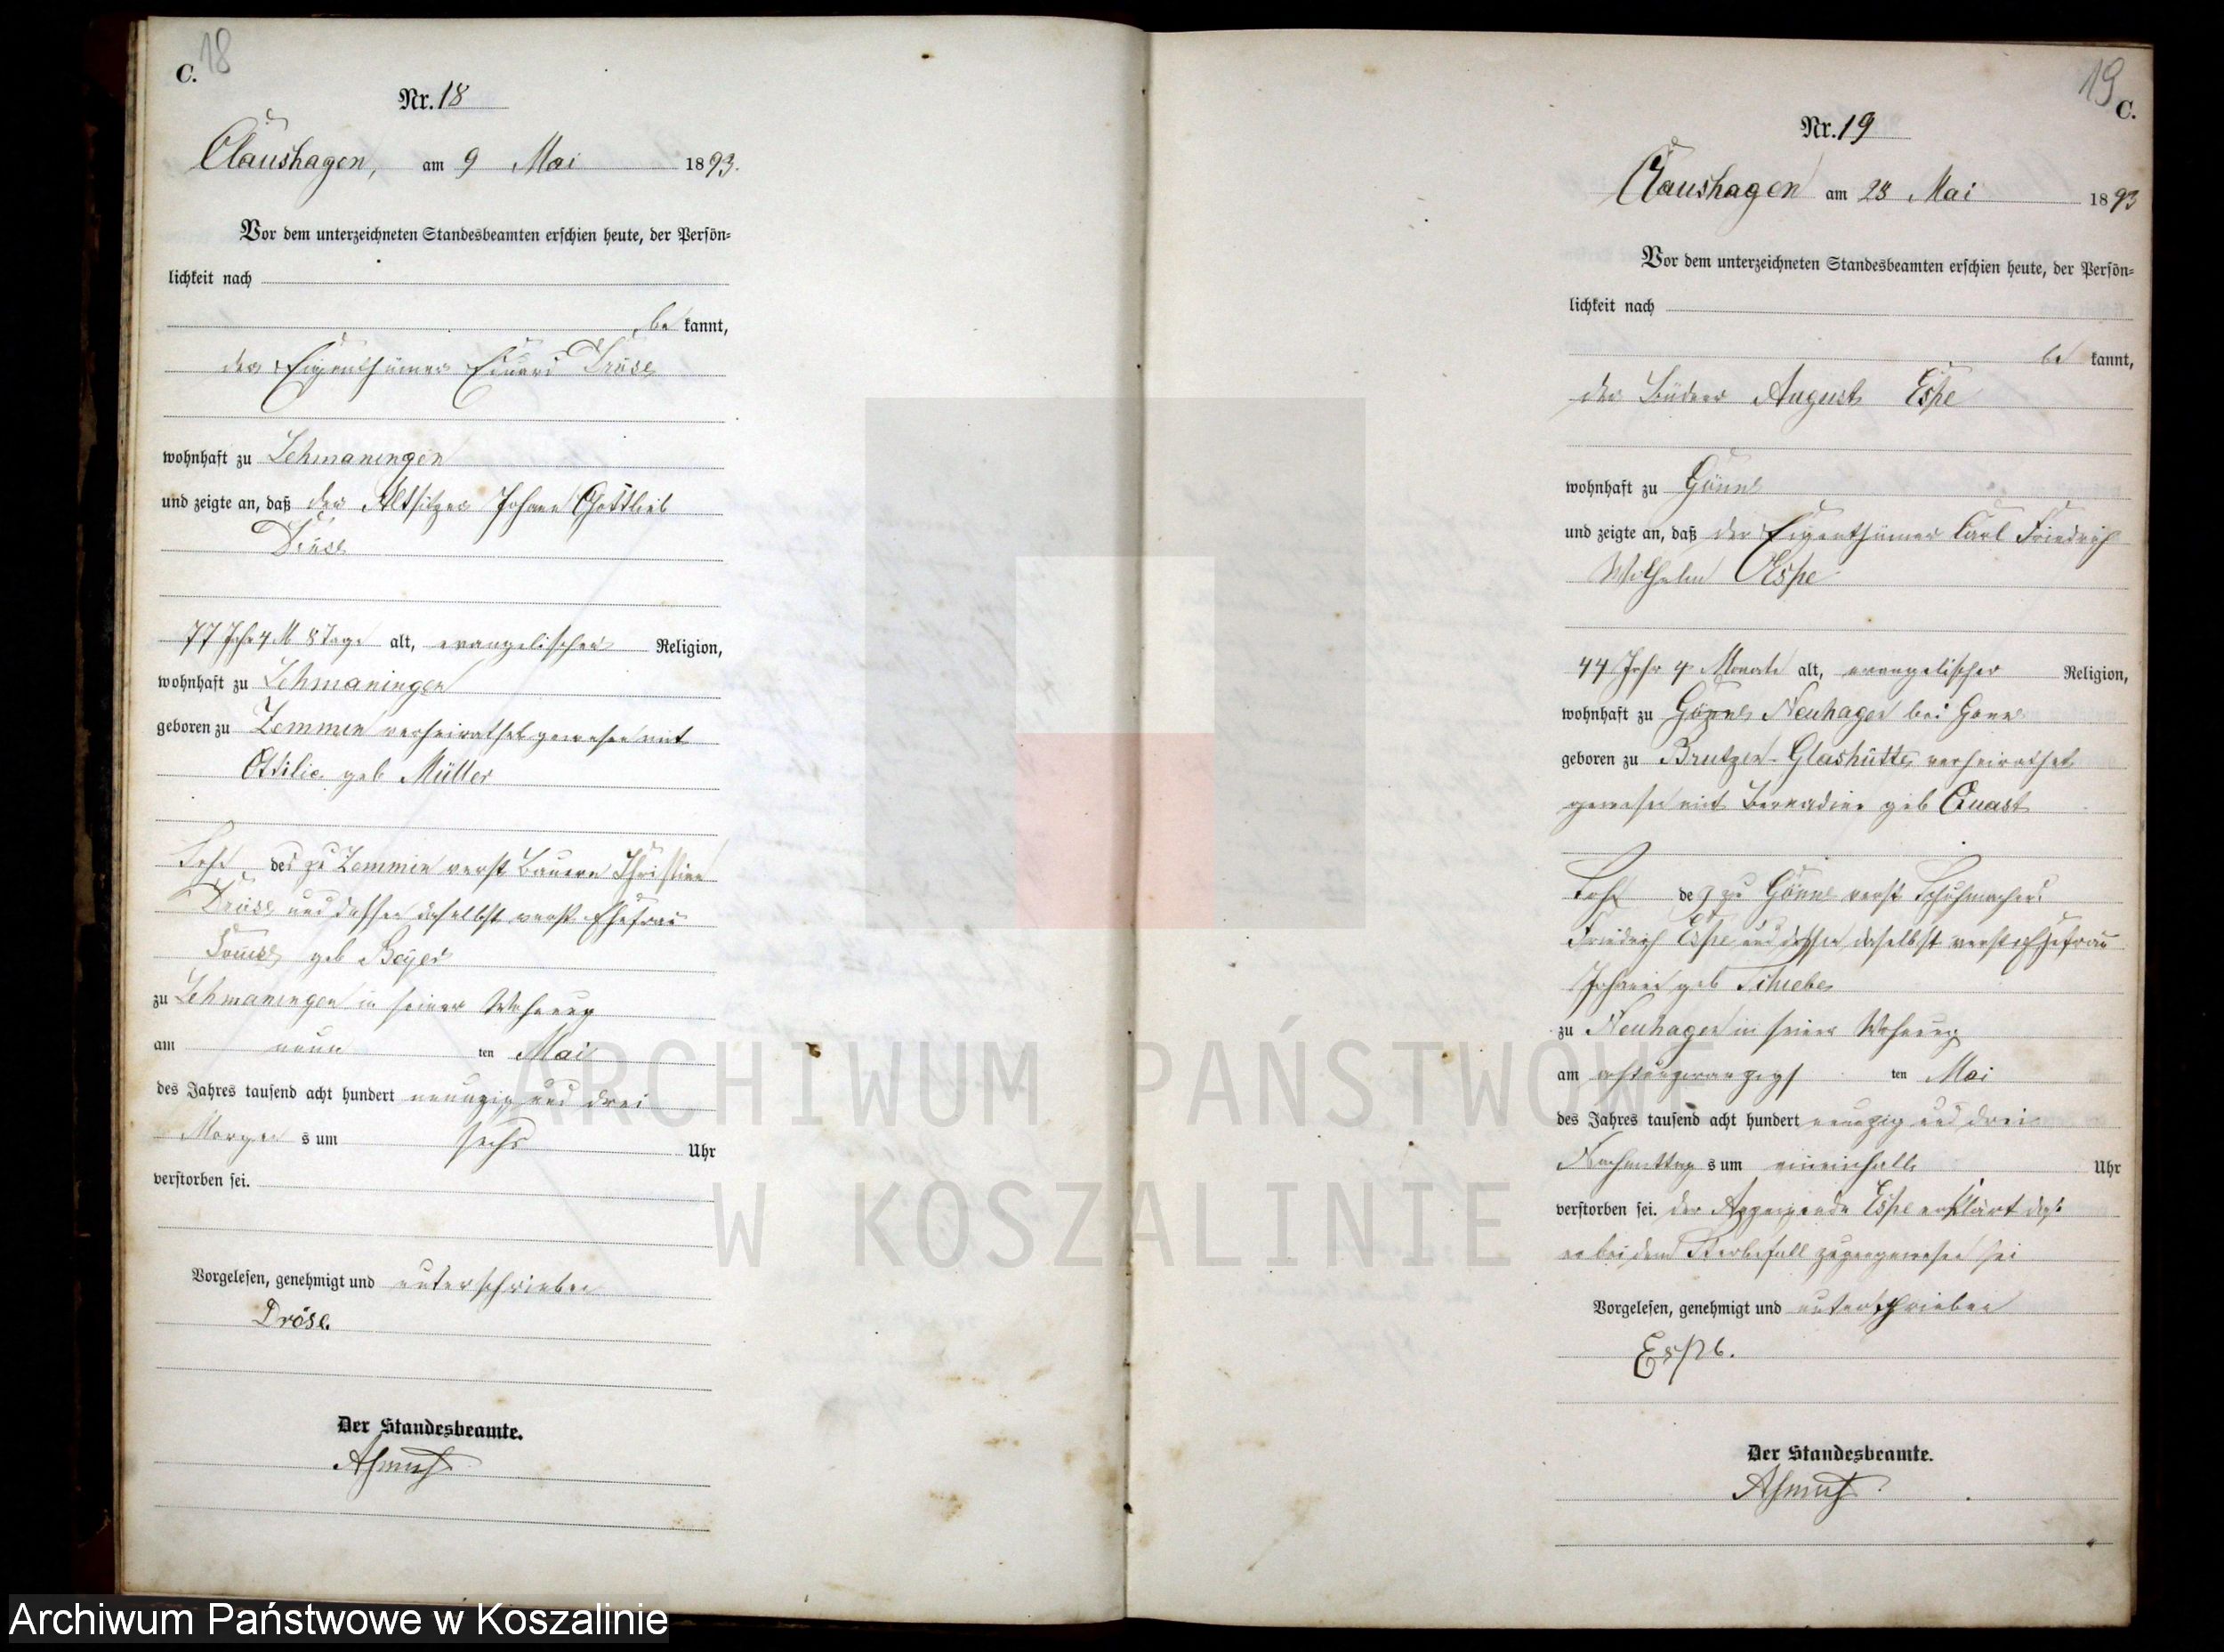 18
C.
Nr. 18
Claushagen, am 9 Mai 1893.
Vor dem unterzeichneten Standesbeamten erschien heute, der Persön-
lichkeit nach
be kannt,
der Eigenthümer Eduard Dröse
wohnhaft zu Lehmaningen
und zeigte an, daß der Altsitzer Johann Gottlieb
Dröse
77 Jahr 4 M 8 Tage alt, evangelischer Religion,
wohnhaft zu Lehmaningen
geboren zu Zemmin verheirathet gewesen mit
Ottilie geb Müller
Sohn des zu Zemmin verst Bauern Christian
Dröse und dessen daselbst verst Ehefrau
geb Beyer
zu Lehmaningen in seiner Wohnung
am neun ten Mai
des Jahres tausend acht hundert neunzig und drei
Morgen s um sechs Uhr
verstorben sei.
Vorgelesen, genehmigt und unterschrieben
Dröse.
Der Standesbeamte.
Asmus
19
C.
Nr. 19
Claushagen am 28 Mai 1893
Vor dem unterzeichneten Standesbeamten erschien heute, der Persön-
lichkeit nach
be kannt,
der Büdner August Espe
wohnhaft zu Gönne
und zeigte an, daß der Eigenthümer Carl Friedrich
Wilhelm Espe
44 Jahr 4 Monate alt, evangelischer Religion,
wohnhaft zu Gönne Neuhagen bei Gönne
geboren zu Brutzen Glashütte verheirathet
gewesen mit Bernadine geb Quast
Sohn des zu Gönne verst Schuhmachers
Friedrich Espe und dessen daselbst verst Ehefrau
geb Thiebe
zu Neuhagen in seiner Wohnung
am achtundzwanzigst ten Mai
des Jahres tausend acht hundert neunzig und drei
Nachmittag s um eineinhalb Uhr
verstorben sei. der Anzeigende Espe erklärt daß
er bei dem Sterbefall zugegen gewesen sei
Vorgelesen, genehmigt und unterschrieben
Espe.
Der Standesbeamte.
Asmus
ARCHIWUM PAŃSTWOWE
W KOSZALINIE
Archiwum Państwowe w Koszalinie